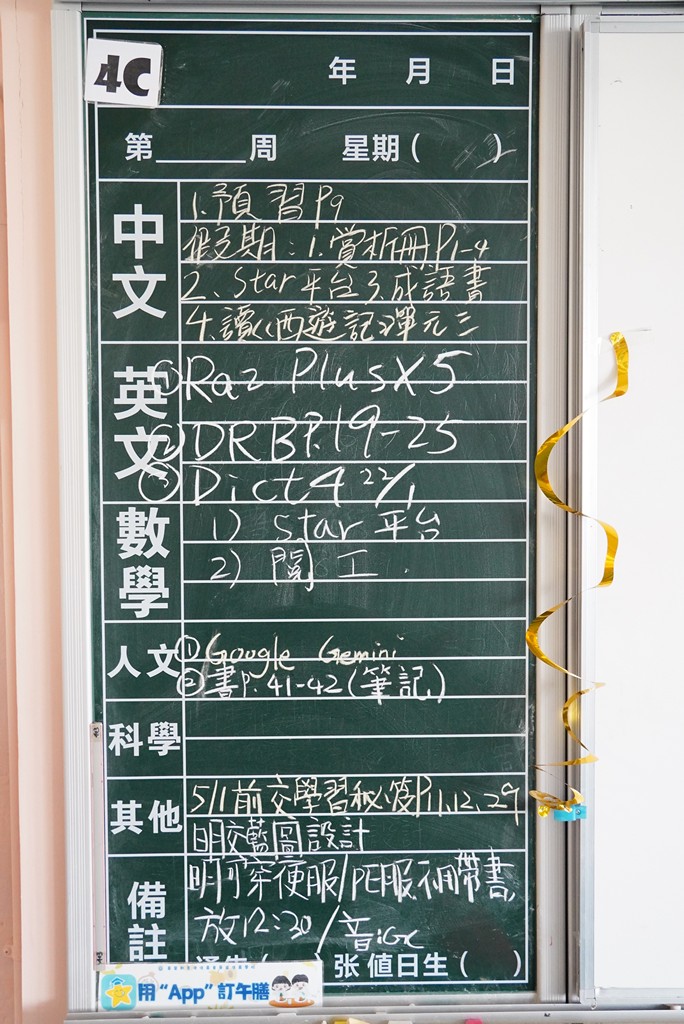 4C
年 月 日
第 周 星期( )
中文
1.預習P9
假期:1.賞析冊P1-4
2、Star平台3.成語書
4.讀《西遊記》單元三
英文
① Raz Plus X5
② DRB P.19-25
③ Dict4 22/1
數學
1) Star 平台
2) 閱工
人文
① Google Gemini
② 書P.41-42(筆記)
科學
其他
5/1前交學習秘笈P11,12,29
明交藍圖設計
備註
明可穿便服/PE服不用帶書
放12:30/音:GC
通告( )张 值日生( )
用“App”訂午膳